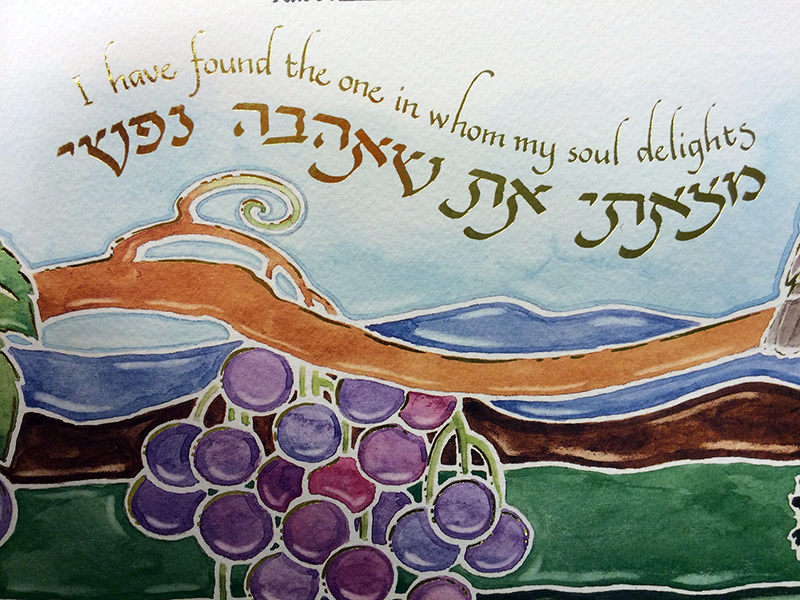 I have found the one in whom my soul delights
מצאתי את שאהבה נפשי